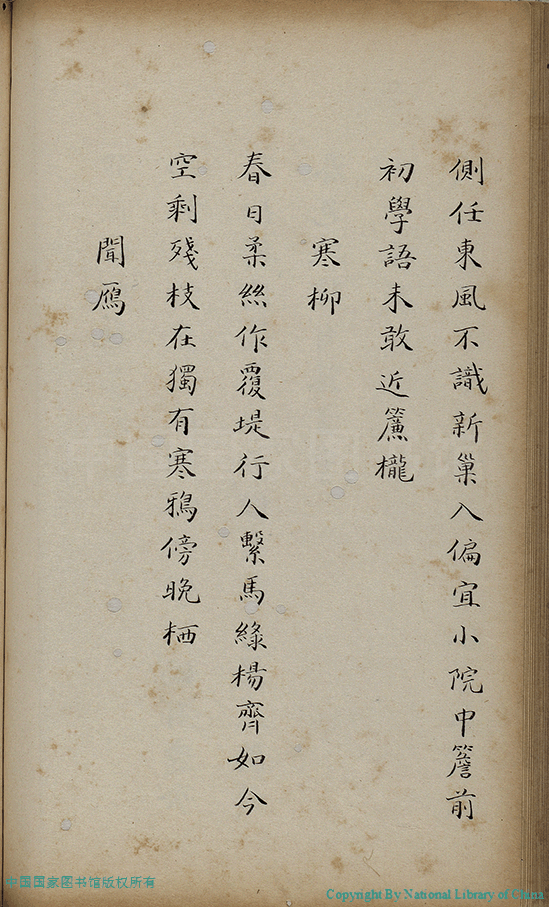 側任東風不識新巢入偏宜小院中簷前
初學語未敢近簾櫳
寒柳
春日柔絲作覆堤行人繫馬綠楊齊如今
空剩殘枝在獨有寒鴉傍晚栖
聞鴈
中国国家图书馆版权所有
Copyright By National Library of China